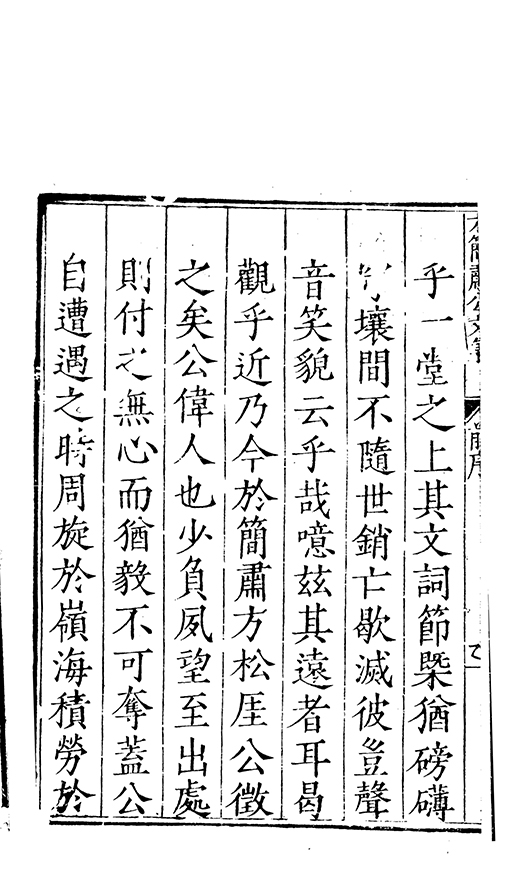 乎一堂之上其文詞節槩猶磅礴
壤間不隨世銷亡歇滅彼豈聲
音笑貌云乎哉噫兹其遠者耳曷
觀乎近乃今於簡肅方松厓公徵
之矣公偉人也少負夙望至出處
則付之無心而猶毅不可奪蓋公
自遭遇之時周旋於嶺海積勞於